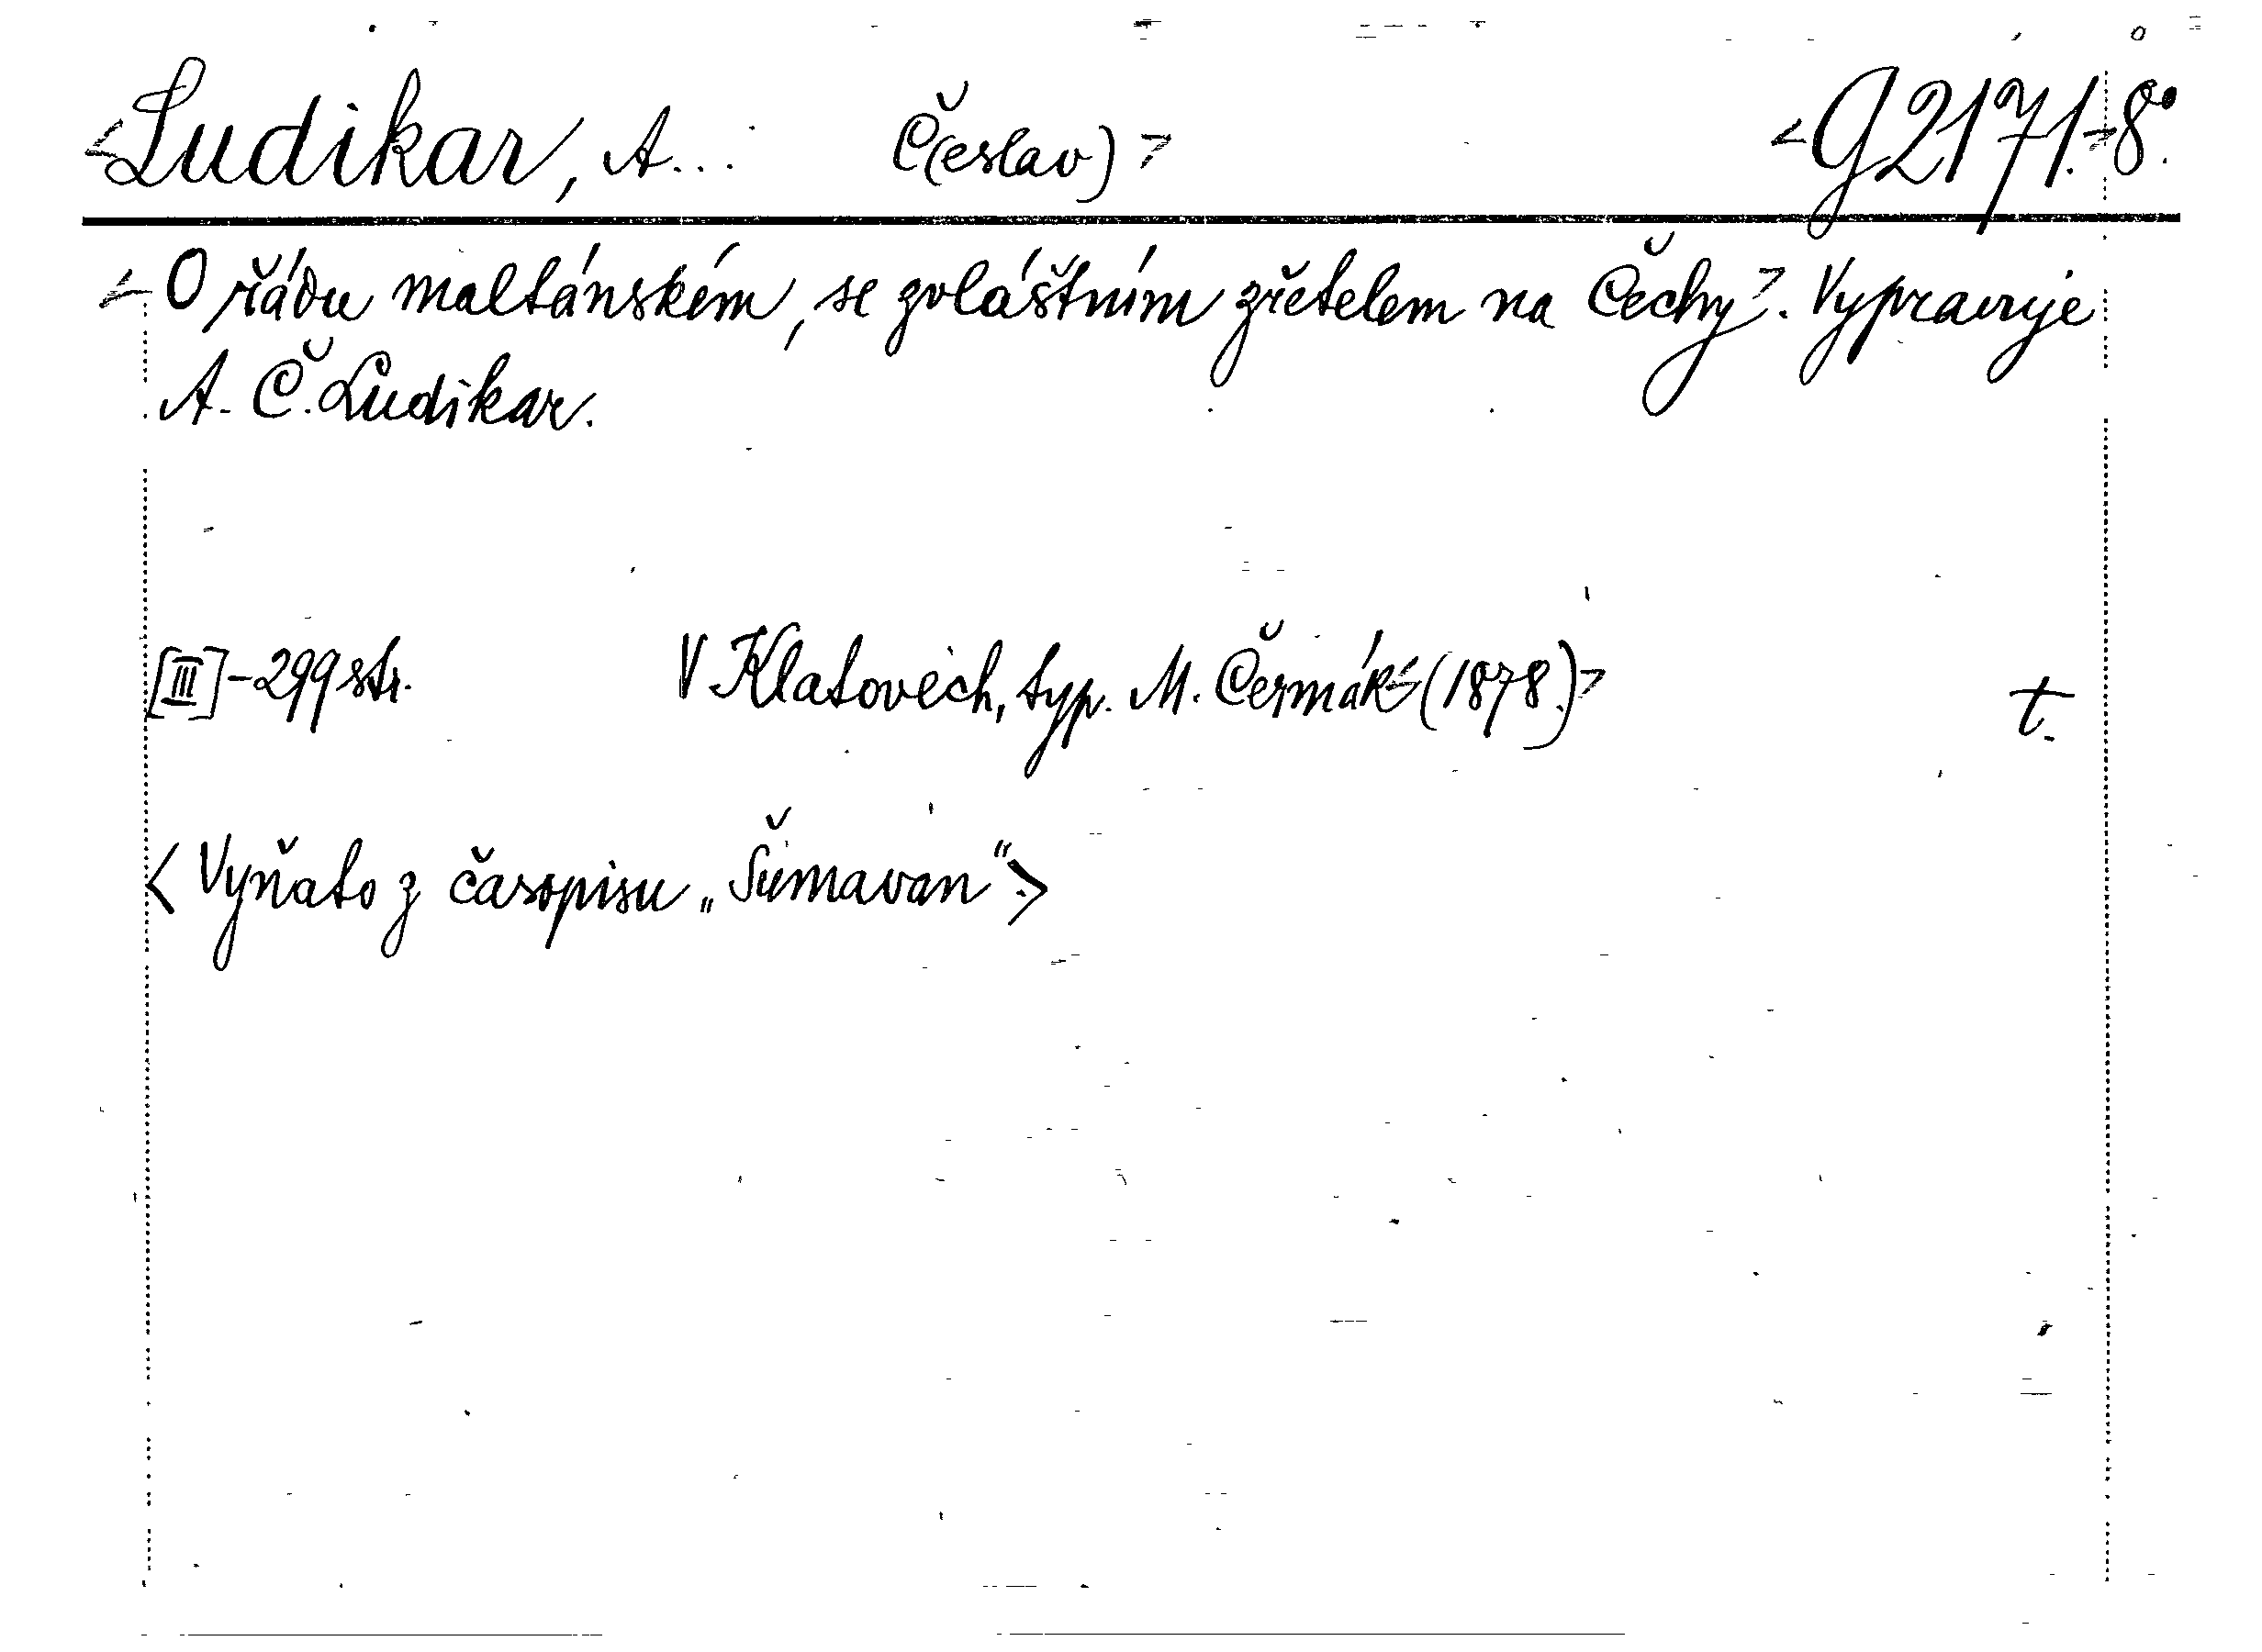 <Ludikar, A... Č(eslav)> <G 2171.>8°.
<O řádu maltánském, se zvláštním zřetelem na Čechy>. Vypravuje
A. Č. Ludikar.
[III]-299 str. V Klatovech, typ. M. Čermák <(1878.)> t.
<Vyňato z časopisu „Šumavan“.>